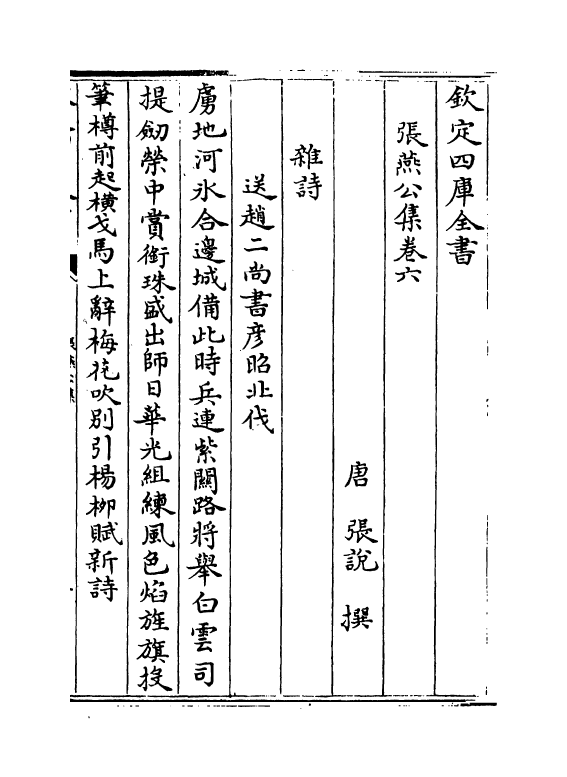 欽定四庫全書
張燕公集卷六
唐 張說 撰
雜詩
送趙二尚書彦昭北伐
虜地河氷合邊城備此時兵連紫關路將舉白雲司
提劒榮中賞銜珠盛出師日華光組練風色焰旌旗投
筆樽前起横戈馬上辭梅花吹别引楊柳賦新詩